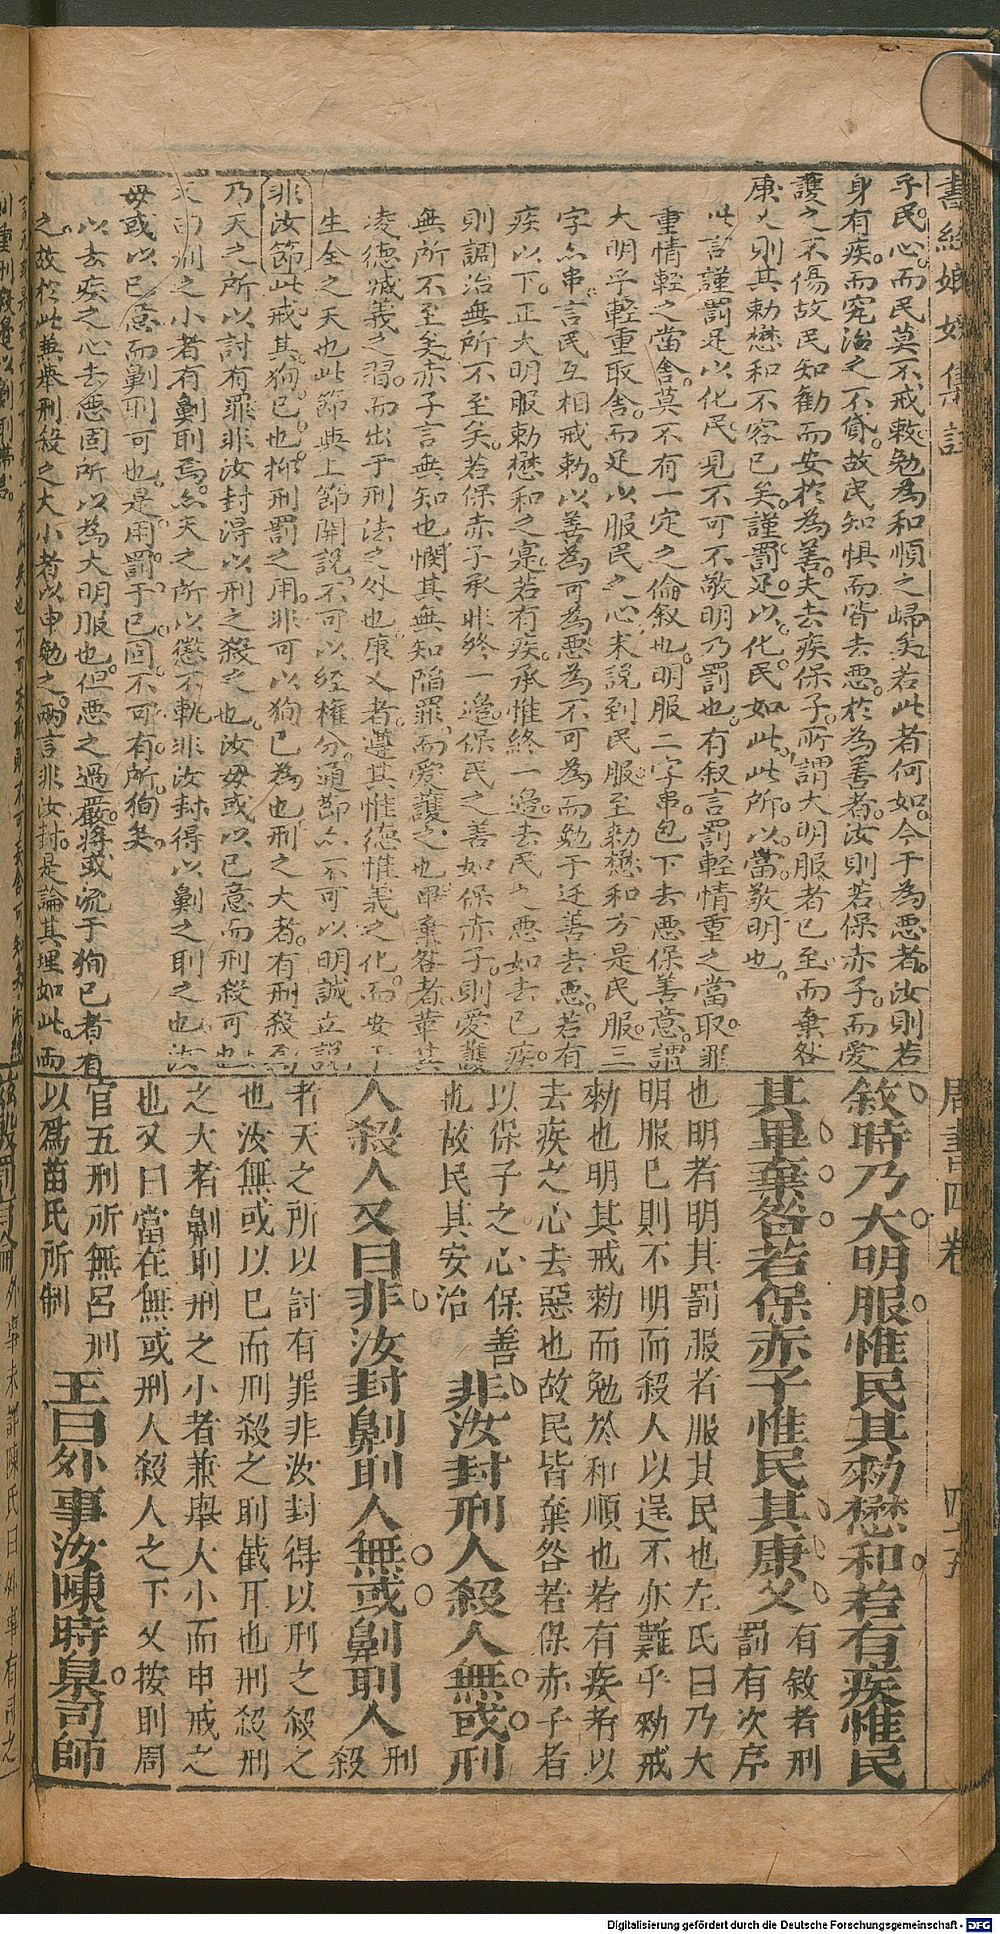 書經娘嬛集註
乎民心而民莫不戒敕勉為和順之歸矣若此者何如今于為惡者汝則若
身有疾而究治之不貸故民知惧而皆去惡於為善者汝則若保赤子而愛
護之不傷故民知勸而安於為善夫去疾保子所謂大明服者已至而棄咎
康乂則其勅懋和不容已矣謹罰足以化民如此此所以當敬明也
此言謹罰足以化民見不可不敬明乃罰也有叙言罰輕情重之當取罪
重情輕之當舍莫不有一定之倫叙也明服二字串包下去惡保善意謂
大明乎輕重取舍而足以服民之心未說到民服至勅懋和方是民服三
字亦串言民互相戒勅以善為可為惡為不可為而勉于迁善去惡若有
疾以下正大明服勅懋和之寔若有疾承惟終一邉去民之惡如去已疾
則調治無所不至矣若保赤子承非終一邉保民之善如保赤子則愛護
無所不至矣赤子言無知也憫其無知陥罪而愛護之也畢棄咎者革其
凌德㓕義之習而出于刑法之外也康乂者遵其惟德惟義之化而安于
生全之天也此節與上節開說不可以經權分通節亦不可以明誠立說
非汝節此戒其狥已也抑刑罰之用非可以狥已為也刑之大者有刑殺焉
乃天之所以討有罪非汝封淂以刑之殺之也汝毋或以已意而刑殺可也
又而刑之小者有劓刵焉亦天之所以懲不軌非汝封得以劓之刵之也汝
毋或以已意而劓刵可也是用罰于已固不可有所狥矣
以去疾之心去惡固所以為大明服也但惡之過嚴將或流于狥已者有
之故於此兼舉刑殺之大小者以申勉之兩言非汝封是論其理如此而
周書四卷 四十五
敘時乃大明服惟民其勑懋和若有疾惟民
其畢棄咎若保赤子惟民其康乂 有敘者刑
罰有次序
也明者明其罰服者服其民也左氏曰乃大
明服已則不明而殺人以逞不亦難乎勑戒
勑也明其戒勑而勉於和順也若有疾者以
去疾之心去惡也故民皆棄咎若保赤子者
以保子之心保善
也故民其安治 非汝封刑人殺人無或刑
人殺人又曰非汝封劓刵人無或劓刵人 刑
殺
者天之所以討有罪非汝封得以刑之殺之
也汝無或以已而刑殺之刵截耳也刑殺刑
之大者劓刵刑之小者兼舉大小而申戒之
也又曰當在無或刑人殺人之下又按刵周
官五刑所無呂刑
以爲苗氏所制 王曰外事汝陳時臬司師
Digitalisierung gefördert durch die Deutsche Forschungsgemeinschaft - DFG